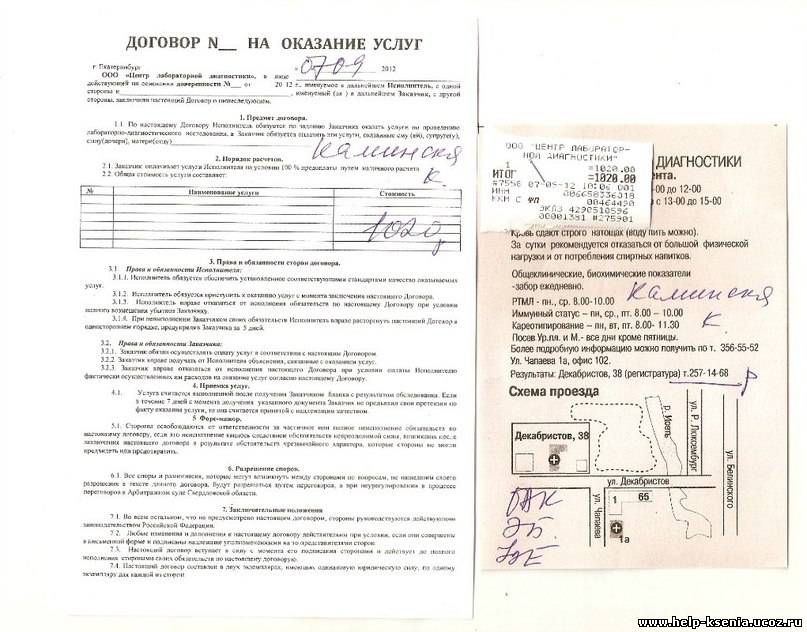 ДОГОВОР N__ НА ОКАЗАНИЕ УСЛУГ
г. Екатеринбург « 0709 2012
ООО «Центр лабораторной диагностики», в лице
действующей на основании доверенности №___ от 2012 г., именуемое в дальнейшем Исполнитель, с одной
стороны и , именуемый (ая) в дальнейшем Заказчик, с другой
стороны, заключили настоящий Договор о нижеследующем.
1. Предмет договора.
1.1. По настоящему Договору Исполнитель обязуется по заданию Заказчика оказать услуги по проведению
лабораторно-диагностического исследования, а Заказчик обязуется оплатить эти услуги, оказанные ему (ей), супругу(ге),
сыну(дочери), матери(отцу)
Каминская
К.
2. Порядок расчетов.
2.1. Заказчик оплачивает услуги Исполнителя на условии 100 % предоплаты путем наличного расчета
2.2. Общая стоимость услуги составляет:
№ Наименование услуги Стоимость
1020
3. Права и обязанности сторон договора.
3.1. Права и обязанности Исполнителя:
3.1.1. Исполнитель обязуется обеспечить установленное соответствующими стандартами качество оказываемых
услуг.
3.1.2. Исполнитель обязуется приступить к оказанию услуг с момента заключения настоящего Договора.
3.1.3. Исполнитель вправе отказаться от исполнения обязательства по настоящему Договору при условии
полного возмещения убытков Заказчику.
3.1.4. При невыполнении Заказчиком своих обязательств Исполнитель вправе расторгнуть настоящий Договор в
одностороннем порядке, предупредив Заказчика за 5 дней.
3.2. Права и обязанности Заказчика:
3.2.1. Заказчик обязан осуществлять оплату услуг в соответствии с настоящим Договором.
3.2.2 Заказчик вправе получать от Исполнителя объяснения, связанные с оказанием услуг.
3.2.3 Заказчик вправе отказаться от исполнения настоящего Договора при условии оплаты Исполнителю
фактически осуществленных им расходов на оказание услуг согласно настоящему Договору.
4. Приемка услуг.
4.1. Услуга считается выполненной после получения Заказчиком бланка с результатом обследования. Если
в течение 7 дней с момента получения указанного документа Заказчик не предъявил свои претензии по
факту оказания услуги, то она считается принятой с надлежащим качеством.
5 Форс-мажор.
5.1. Стороны освобождаются от ответственности за частичное или полное неисполнение обязательств по
настоящему договору, если это неисполнение явилось следствием обстоятельств непреодолимой силы, возникших после
заключения настоящего договора в результате обстоятельств чрезвычайного характера, которые стороны не могли
предвидеть или предотвратить.
6. Разрешение споров.
6.1. Все споры и разногласия, которые могут возникнуть между сторонами по вопросам, не нашедшим своего
разрешения в тексте данного договора, будут разрешаться путем переговоров, а при неурегулировании в процессе
переговоров в Арбитражном суде Свердловской области.
7. Заключительные положения
7.1. Во всем остальном, что не предусмотрено настоящим договором, стороны руководствуются действующим
законодательством Российской Федерации.
7.2. Любые изменения и дополнения к настоящему договору действительны при условии, если они совершены
в письменной форме и подписаны надлежаще уполномоченными на то представителями сторон.
7.3. Настоящий договор вступает в силу с момента его подписания сторонами и действует до полного
исполнения сторонами своих обязательств по настоящему договору.
7.4. Настоящий договор составлен в двух экземплярах, имеющих одинаковую юридическую силу, по одному
экземпляру для каждой из сторон
ООО "ЦЕНТР ЛАБОРАТОР-
НОЙ ДИАГНОСТИКИ"
1 =1020.00
ИТОГ =1020.00
#7556 07-09-12 10:06 001
ИНН 006658336018
ККМ С ЧП 00464490
ЭКЛЗ 4290510596
00001381 #275901
ДИАГНОСТИКИ
ента.
-00 до 12-00
с 13-00 до 15-00
Кровь сдают строго натощак (воду пить можно).
За сутки рекомендуется отказаться от большой физической
нагрузки и от потребления спиртных напитков.
Общеклинические, биохимические показатели
-забор ежедневно.
РТМЛ - пн., ср. 8.00-10.00
Каминская
Иммунный статус – пн, ср., пт. 8.00 – 10.00
К.
Кареотипирование – пн, вт, пт. 8.00- 11.30
Посев Ур.пл. и М.- все дни кроме пятницы.
Более подробную информацию можно получить по т. 356-55-52
Ул. Чапаева 1а, офис 102.
Результаты: Декабристов, 38 (регистратура) т.257-14-68
Схема проезда
Декабристов, 38
р. Исеть
ул. Р. Люксембург
ул. Белинского
ул. Декабристов
ул. Чапаева
1 65
1а
www.help-ksenia.ucoz.ru